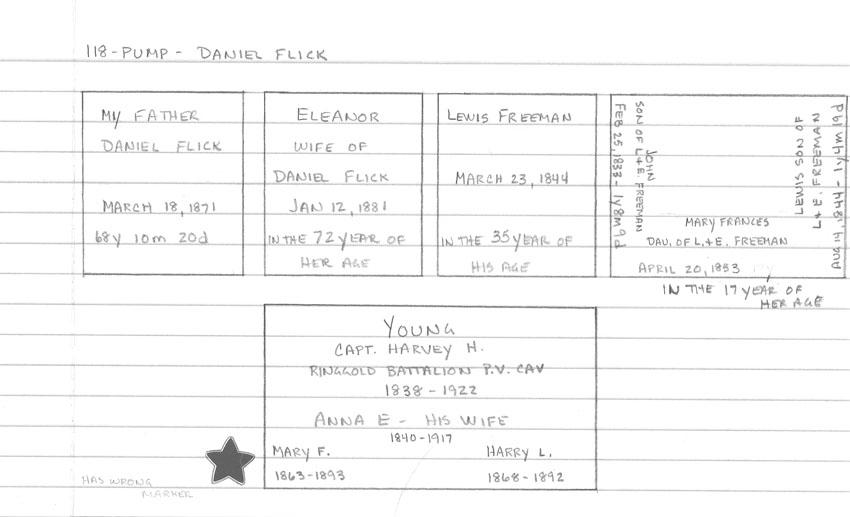 118-PUMP - DANIEL FLICK
MY FATHER
DANIEL FLICK
MARCH 18, 1871
68y 10m 20d
ELEANOR
WIFE OF
DANIEL FLICK
JAN 12, 1881
IN THE 72 YEAR OF
HER AGE
LEWIS FREEMAN
MARCH 23, 1844
IN THE 35 YEAR OF
HIS AGE
JOHN
SON OF L.+E. FREEMAN
FEB 25, 1833 - 1y8m9d
LEWIS SON OF
L+E. FREEMAN
1y4m19d
MARY FRANCES
DAU. OF L.+E. FREEMAN
APRIL 20, 1853
IN THE 17 YEAR OF
HER AGE
YOUNG
CAPT. HARVEY H.
RINGGOLD BATTALION P.V. CAV
1838 - 1922
ANNA E - HIS WIFE
1840-1917
MARY F.
1863-1893
HARRY L.
1868-1892
HAS WRONG
MARKER